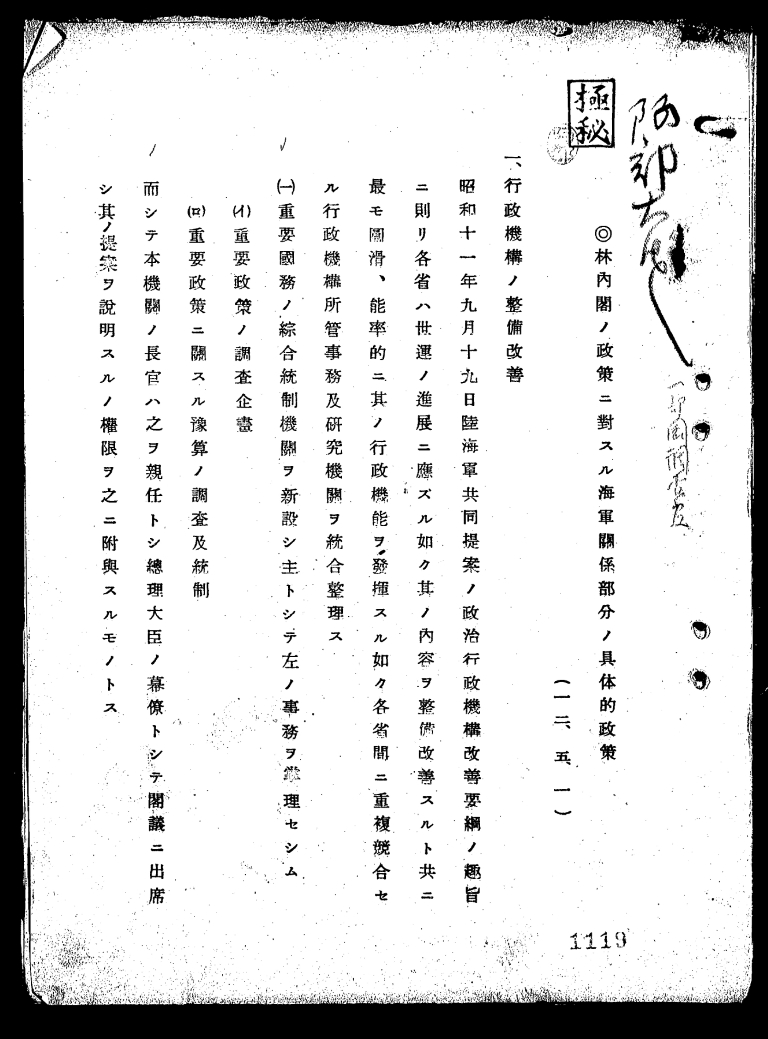 極秘
阿部大佐
◎林內閣ノ政策ニ對スル海軍關係部分ノ具体的政策
(一二、五、一)
一、行政機構ノ整備改善
昭和十一年九月十九日陸海軍共同提案ノ政治行政機構改善要綱ノ趣旨
ニ則リ各省ハ世運ノ進展ニ應ズル如ク其ノ內容ヲ整備改善スルト共ニ
最モ圓滑、能率的ニ其ノ行政機能ヲ發揮スル如ク各省間ニ重複競合セ
ル行政機構所管事務及硏究機關ヲ統合整理ス
㈠重要國務ノ綜合統制機關ヲ新設シ主トシテ左ノ事務ヲ掌理セシム
(イ)重要政策ノ調査企畫
(ロ)重要政策ニ關スル豫算ノ調査及統制
而シテ本機關ノ長官ハ之ヲ親任トシ總理大臣ノ幕僚トシテ閣議ニ出席
シ其ノ提案ヲ說明スルノ權限ヲ之ニ附與スルモノトス
1119